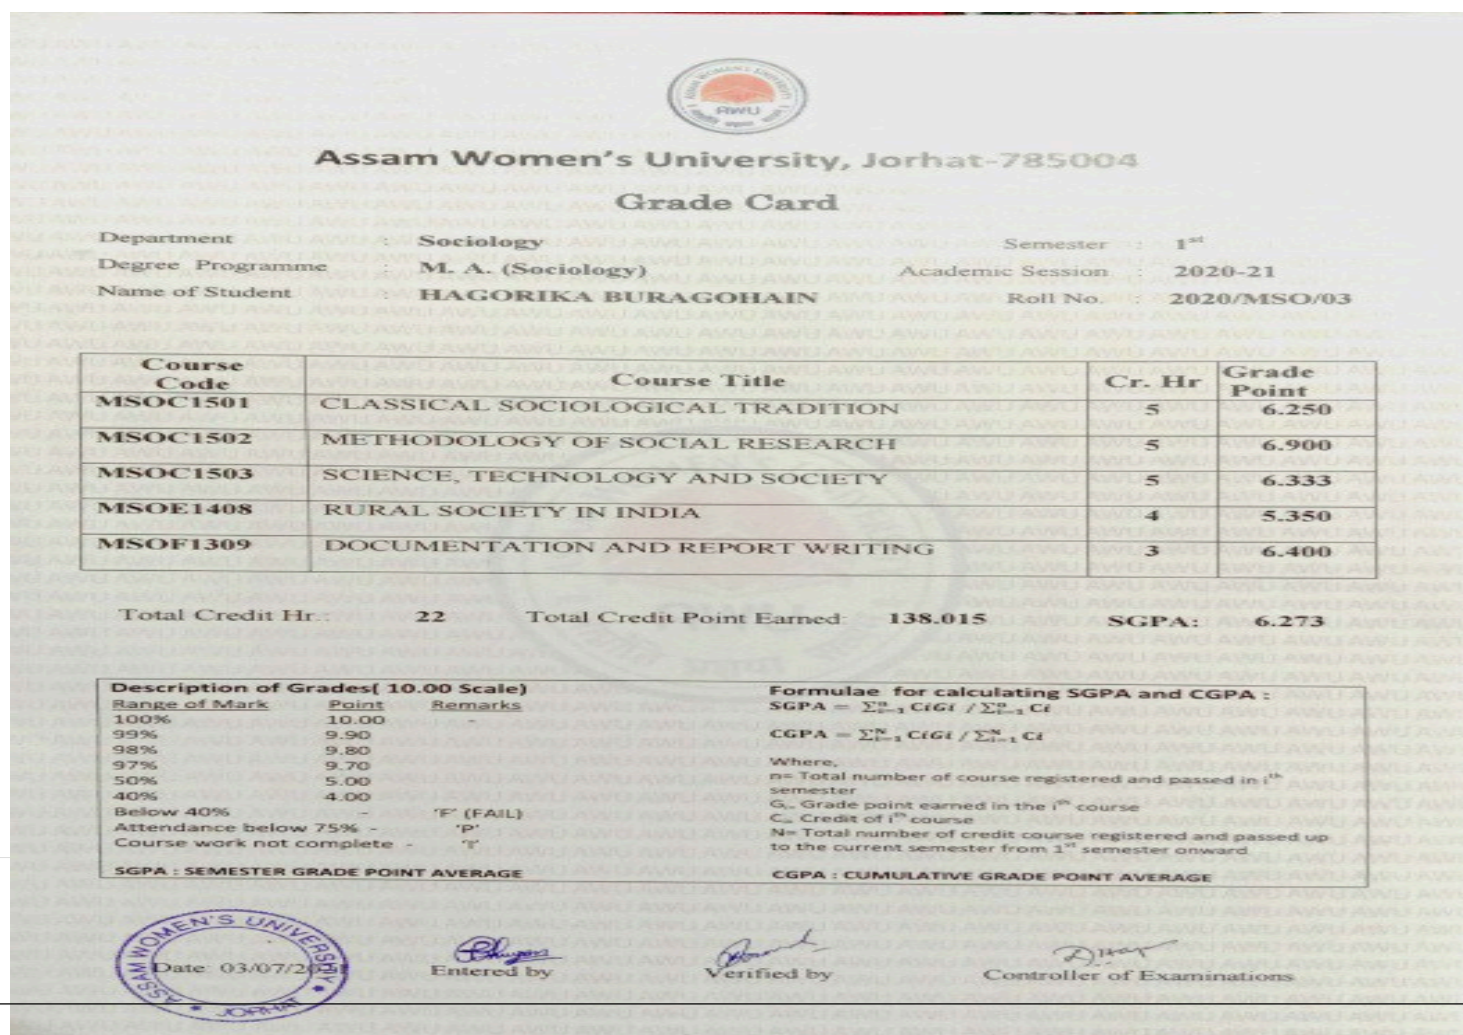 ASSAM WOMEN'S UNIVERSITY
AWU
Assam Women's University, Jorhat-785004
Grade Card
Department : Sociology Semester : 1st
Degree Programme : M. A. (Sociology) Academic Session : 2020-21
Name of Student : HAGORIKA BURAGOHAIN Roll No. : 2020/MSO/03
Course Code Course Title Cr. Hr Grade Point
MSOC1501 CLASSICAL SOCIOLOGICAL TRADITION 5 6.250
MSOC1502 METHODOLOGY OF SOCIAL RESEARCH 5 6.900
MSOC1503 SCIENCE, TECHNOLOGY AND SOCIETY 5 6.333
MSOE1408 RURAL SOCIETY IN INDIA 4 5.350
MSOF1309 DOCUMENTATION AND REPORT WRITING 3 6.400
Total Credit Hr.: 22 Total Credit Point Earned: 138.015 SGPA: 6.273
Description of Grades( 10.00 Scale)
Range of Mark Point Remarks
100% 10.00 -
99% 9.90
98% 9.80
97% 9.70
50% 5.00
40% 4.00
Below 40% - 'F' (FAIL)
Attendance below 75% - 'P'
Course work not complete - 'I'
SGPA : SEMESTER GRADE POINT AVERAGE
Formulae for calculating SGPA and CGPA :
SGPA = Σⁿᵢ₌₁ CiGi / Σⁿᵢ₌₁ Ci
CGPA = Σᴺᵢ₌₁ CiGi / Σᴺᵢ₌₁ Ci
Where,
n= Total number of course registered and passed in ith
semester
Gi= Grade point earned in the ith course
Ci= Credit of ith course
N= Total number of credit course registered and passed up
to the current semester from 1st semester onward
CGPA : CUMULATIVE GRADE POINT AVERAGE
ASSAM WOMEN'S UNIVERSITY
Date: 03/07/2021
JORHAT
Entered by Verified by Controller of Examinations